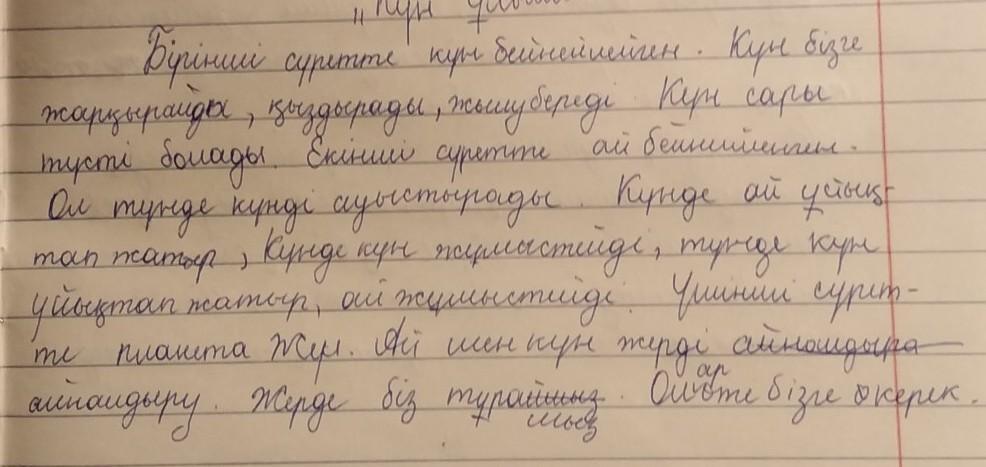 „Күн
Бірінші суретте күн бейнейлейген. Күн бізге
жарқырайды, қыздырады, жылу береді Күн сары
түсті болады. Екінші суретте ай бейнийленген.
Ол түнде күнді ауыстырады. Күнде ай ұйық-
тап жатыр, Күнде күн жұмыстейді, түнде күн
ұйықтап жатыр, ай жұмыстейді Үшінші сурет-
те планета Жер. Ай мен күн жерді айналдыра
айналдыру. Жерде біз тұрамыз. Олар өте бізге керек.